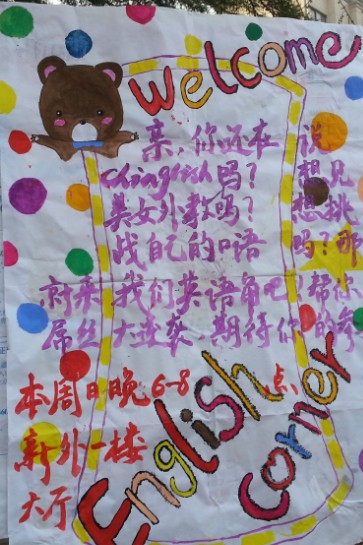 welcome
亲,你还在说
Chinglish吗?想见
美女外教吗?想挑
战自己的口语吗?那
就来我们英语角吧!帮你
屌丝大变装,期待你的参
本周日晚6-8点
新外一楼
大厅
English
corner